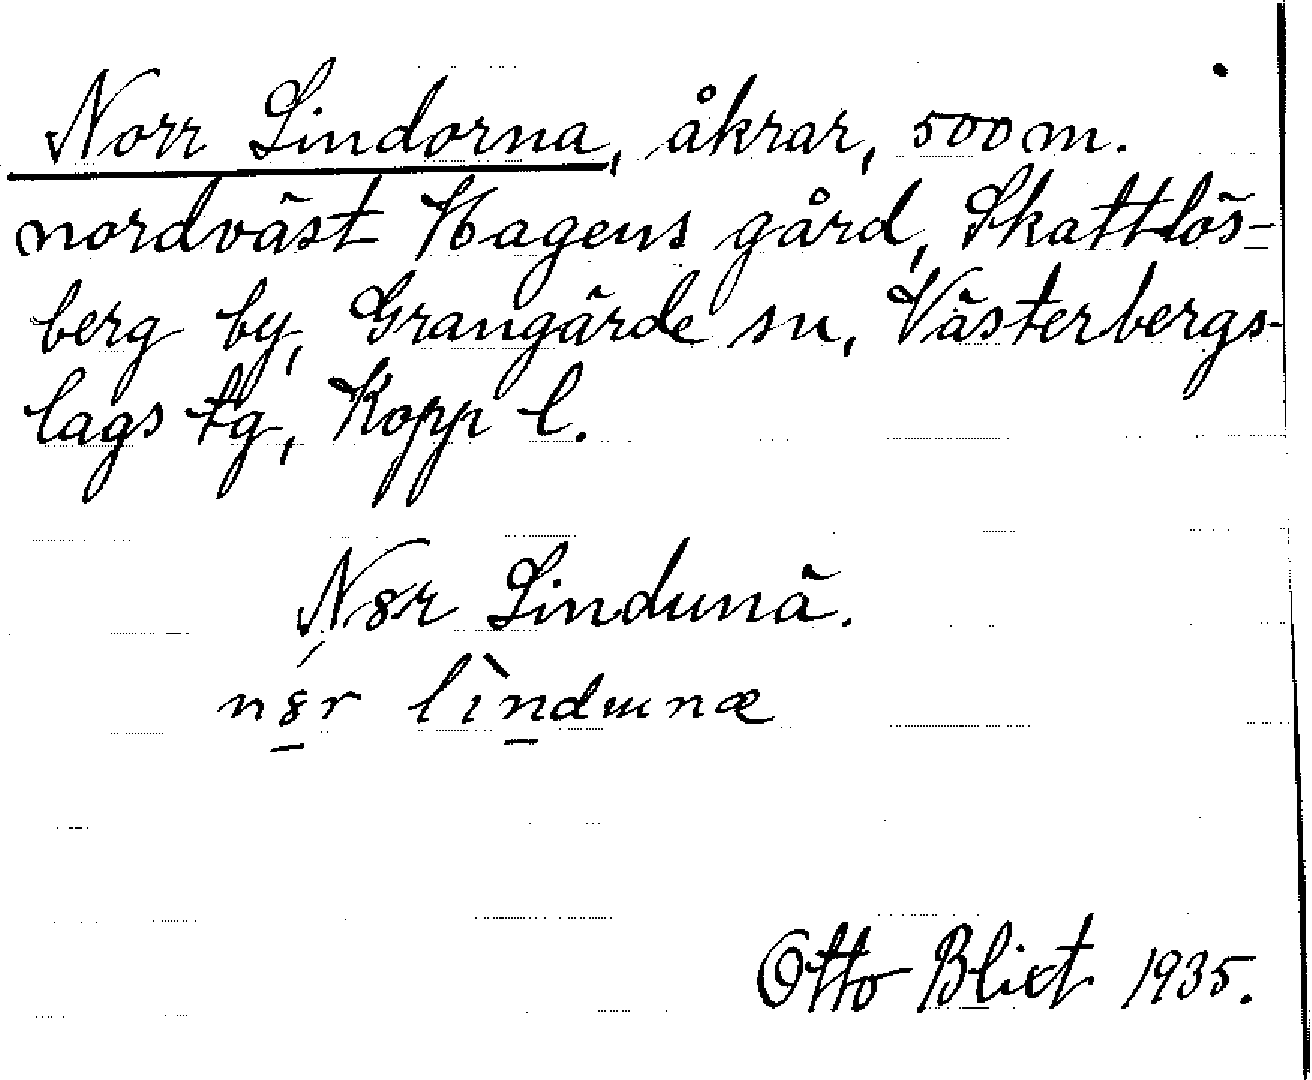 Norr Lindorna, åkrar, 500 m.
nordväst Hagens gård, Skattlös-
berg by, Grangärde sn, Västerbergs-
lags tg, Kopp l.
N8r Lindunä.
n8r lìndunæ
Otto Blixt 1935.